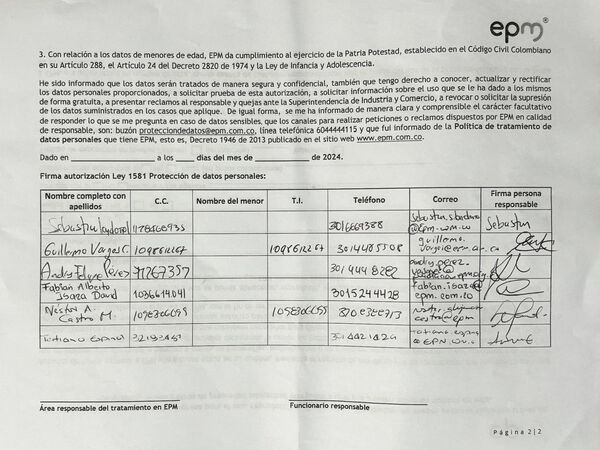 epm®
3. Con relación a los datos de menores de edad, EPM da cumplimiento al ejercicio de la Patria Potestad, establecido en el Código Civil Colombiano
en su Artículo 288, el Artículo 24 del Decreto 2820 de 1974 y la Ley de Infancia y Adolescencia.
He sido informado que los datos serán tratados de manera segura y confidencial, también que tengo derecho a conocer, actualizar y rectificar
los datos personales proporcionados, a solicitar prueba de esta autorización, a solicitar información sobre el uso que se le ha dado a los mismos
de forma gratuita, a presentar reclamos al responsable y quejas ante la Superintendencia de Industria y Comercio, a revocar o solicitar la supresión
de los datos suministrados en los casos que aplique. De igual forma, se me ha informado de manera clara y comprensible el carácter facultativo
de responder lo que se me pregunta en caso de datos sensibles, que los canales para realizar peticiones o reclamos dispuestos por EPM en calidad
de responsable, son: buzón protecciondedatos@epm.com.co, línea telefónica 6044444115 y que fui informado de la Política de tratamiento de
datos personales que tiene EPM, esto es, Decreto 1946 de 2013 publicado en el sitio web www.epm.com.co.
Dado en a los días del mes de de 2024.
Firma autorización Ley 1581 Protección de datos personales:
Nombre completo con apellidos C.C. Nombre del menor T.I. Teléfono Correo Firma persona responsable
Sebastian Sebastian
Guillermo Vargas C. guillermo.
Andres Felipe Perez 71267357 andres.perez.
Fabian Alberto Isaza David 1036614041 3015244428 fabian.isaza@ epm.com.co
Nestor A. Castro M.
Tatiana
Área responsable del tratamiento en EPM
Funcionario responsable
Página 2|2